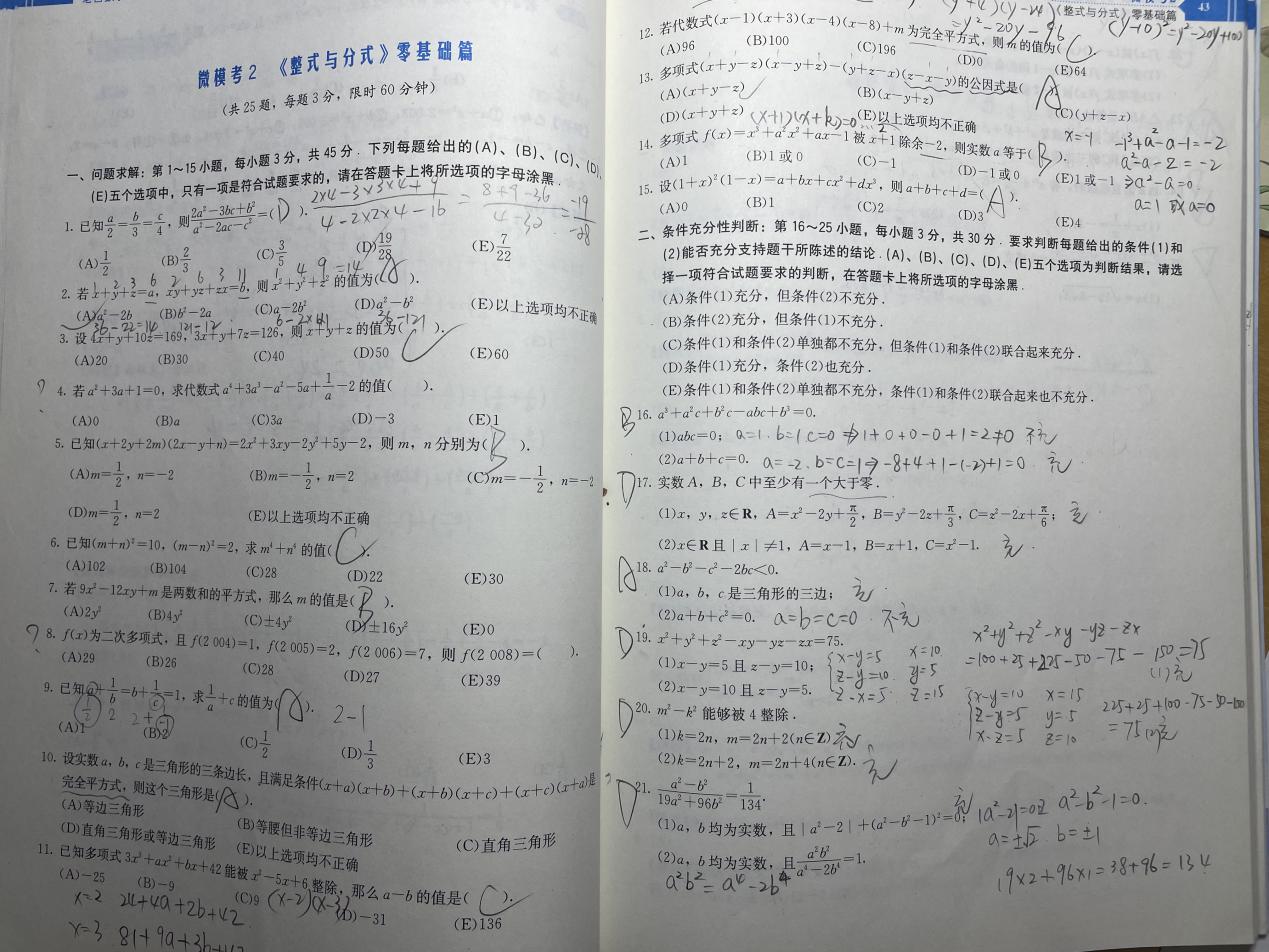 微模考2 《整式与分式》零基础篇
(共25题，每题3分，限时60分钟)
一、问题求解：第1～15小题，每小题3分，共45分．下列每题给出的(A)、(B)、(C)、(D)、
(E)五个选项中，只有一项是符合试题要求的，请在答题卡上将所选项的字母涂黑．
1. 已知a/2=b/3=c/4，则(2a²-3bc+b²)/(a²-2ac-c²)=( D ).
(2×4-3×3×4+9)/(4-2×2×4-16) = (8+9-36)/(4-32) = -19/-28
(A)1/2 (B)2/3 (C)3/5 (D)19/28 (E)7/22
1 2 3 6 2 6 3 11 1 4 9 =14
2. 若x+y+z=a，xy+yz+zx=b，则x²+y²+z²的值为( A ).
(A)a²-2b (B)b²-2a (C)a-2b² (D)a²-b² (E)以上选项均不正确
36-22=14 121-12 6-2×121 36-121
3. 设4x+y+10z=169，3x+y+7z=126，则x+y+z的值为( C ).
(A)20 (B)30 (C)40 (D)50 (E)60
? 4. 若a²+3a+1=0，求代数式a⁴+3a³-a²-5a+1/a-2的值( ).
(A)0 (B)a (C)3a (D)-3 (E)1
5. 已知(x+2y+2m)(2x-y+n)=2x²+3xy-2y²+5y-2，则m，n分别为( B ).
(A)m=1/2，n=-2 (B)m=-1/2，n=2 (C)m=-1/2，n=-2
(D)m=1/2，n=2 (E)以上选项均不正确
6. 已知(m+n)²=10，(m-n)²=2，求m⁴+n⁴的值( C ).
(A)102 (B)104 (C)28 (D)22 (E)30
7. 若9x²-12xy+m是两数和的平方式，那么m的值是( B ).
(A)2y² (B)4y² (C)±4y² (D)±16y² (E)0
? 8. f(x)为二次多项式，且f(2 004)=1，f(2 005)=2，f(2 006)=7，则f(2 008)=( ).
(A)29 (B)26 (C)28 (D)27 (E)39
9. 已知a+1/b=b+1/c=1，求1/a+c的值为( A ).
1/2 2 2+(-1) 2-1
(A)1 (B)2 (C)1/2 (D)1/3 (E)3
10. 设实数a，b，c是三角形的三条边长，且满足条件(x+a)(x+b)+(x+b)(x+c)+(x+c)(x+a)是
完全平方式，则这个三角形是( A ).
(A)等边三角形 (B)等腰但非等边三角形 (C)直角三角形
(D)直角三角形或等边三角形 (E)以上选项均不正确
11. 已知多项式3x³+ax²+bx+42能被x²-5x+6整除，那么a-b的值是( C ).
(A)-25 (B)-9 (C)9 (D)-31 (E)136
(x-2)(x-3)
x=2 24+4a+2b+42
x=3 81+9a+3b+42
《整式与分式》零基础篇
43
(y+4)(y-24)
=y²-20y-96 (y-10)²=y²-20y+100
12. 若代数式(x-1)(x+3)(x-4)(x-8)+m为完全平方式，则m的值为( C ).
(A)96 (B)100 (C)196 (D)0 (E)64
13. 多项式(x+y-z)(x-y+z)-(y+z-x)(z-x-y)的公因式是( A ).
(A)(x+y-z) (B)(x-y+z) (C)(y+z-x)
(D)(x+y+z) (E)以上选项均不正确
14. 多项式f(x)=x³+a²x²+ax-1被x+1除余-2，则实数a等于( B ).
(A)1 (B)1或0 (C)-1 (D)-1或0 (E)1或-1
x=-1 -1³+a²-a-1=-2
a²-a-2=-2
⇒a²-a=0
a=1 或a=0
15. 设(1+x)²(1-x)=a+bx+cx²+dx³，则a+b+c+d=( A ).
(A)0 (B)1 (C)2 (D)3 (E)4
二、条件充分性判断：第16～25小题，每小题3分，共30分．要求判断每题给出的条件(1)和
(2)能否充分支持题干所陈述的结论．(A)、(B)、(C)、(D)、(E)五个选项为判断结果，请选
择一项符合试题要求的判断，在答题卡上将所选项的字母涂黑．
(A)条件(1)充分，但条件(2)不充分．
(B)条件(2)充分，但条件(1)不充分．
(C)条件(1)和条件(2)单独都不充分，但条件(1)和条件(2)联合起来充分．
(D)条件(1)充分，条件(2)也充分．
(E)条件(1)和条件(2)单独都不充分，条件(1)和条件(2)联合起来也不充分．
B 16. a³+a²c+b²c-abc+b³=0.
(1)abc=0; a=1. b=1 c=0 ⇒1+0+0-0+1=2≠0
(2)a+b+c=0. a=-2. b=c=1⇒-8+4+1-(-2)+1=0. 充
D 17. 实数A，B，C中至少有一个大于零．
(1)x，y，z∈R，A=x²-2y+π/2，B=y²-2z+π/3，C=z²-2x+π/6; 充
(2)x∈R且|x|≠1，A=x-1，B=x+1，C=x²-1. 充.
A 18. a²-b²-c²-2bc<0.
(1)a，b，c是三角形的三边; 充
(2)a+b+c²=0. a=b=c=0 不充
D 19. x²+y²+z²-xy-yz-zx=75.
(1)x-y=5且z-y=10; x-y=5 z-y=10 z-x=5 x=10 y=5 z=15
x²+y²+z²-xy-yz-zx
=100+25+225-50-75-150=75
(1)充
(2)x-y=10且z-y=5. x-y=10 z-y=5 x-z=5 x=15 y=5 z=10
225+25+100-75-50-150
=75(2)充
D 20. m²-k²能够被4整除．
(1)k=2n，m=2n+2(n∈Z); 充
(2)k=2n+2，m=2n+4(n∈Z). 充
D 21. (a²-b²)/(19a²+96b²)=1/134.
(1)a，b均为实数，且|a²-2|+(a²-b²-1)²=0; 充 |a²-2|=0 a²-b²-1=0.
a=±√2. b=±1
(2)a，b均为实数，且a²b²/(a⁴-2b⁴)=1.
19×2+96×1=38+96=134
a²b²=a⁴-2b⁴